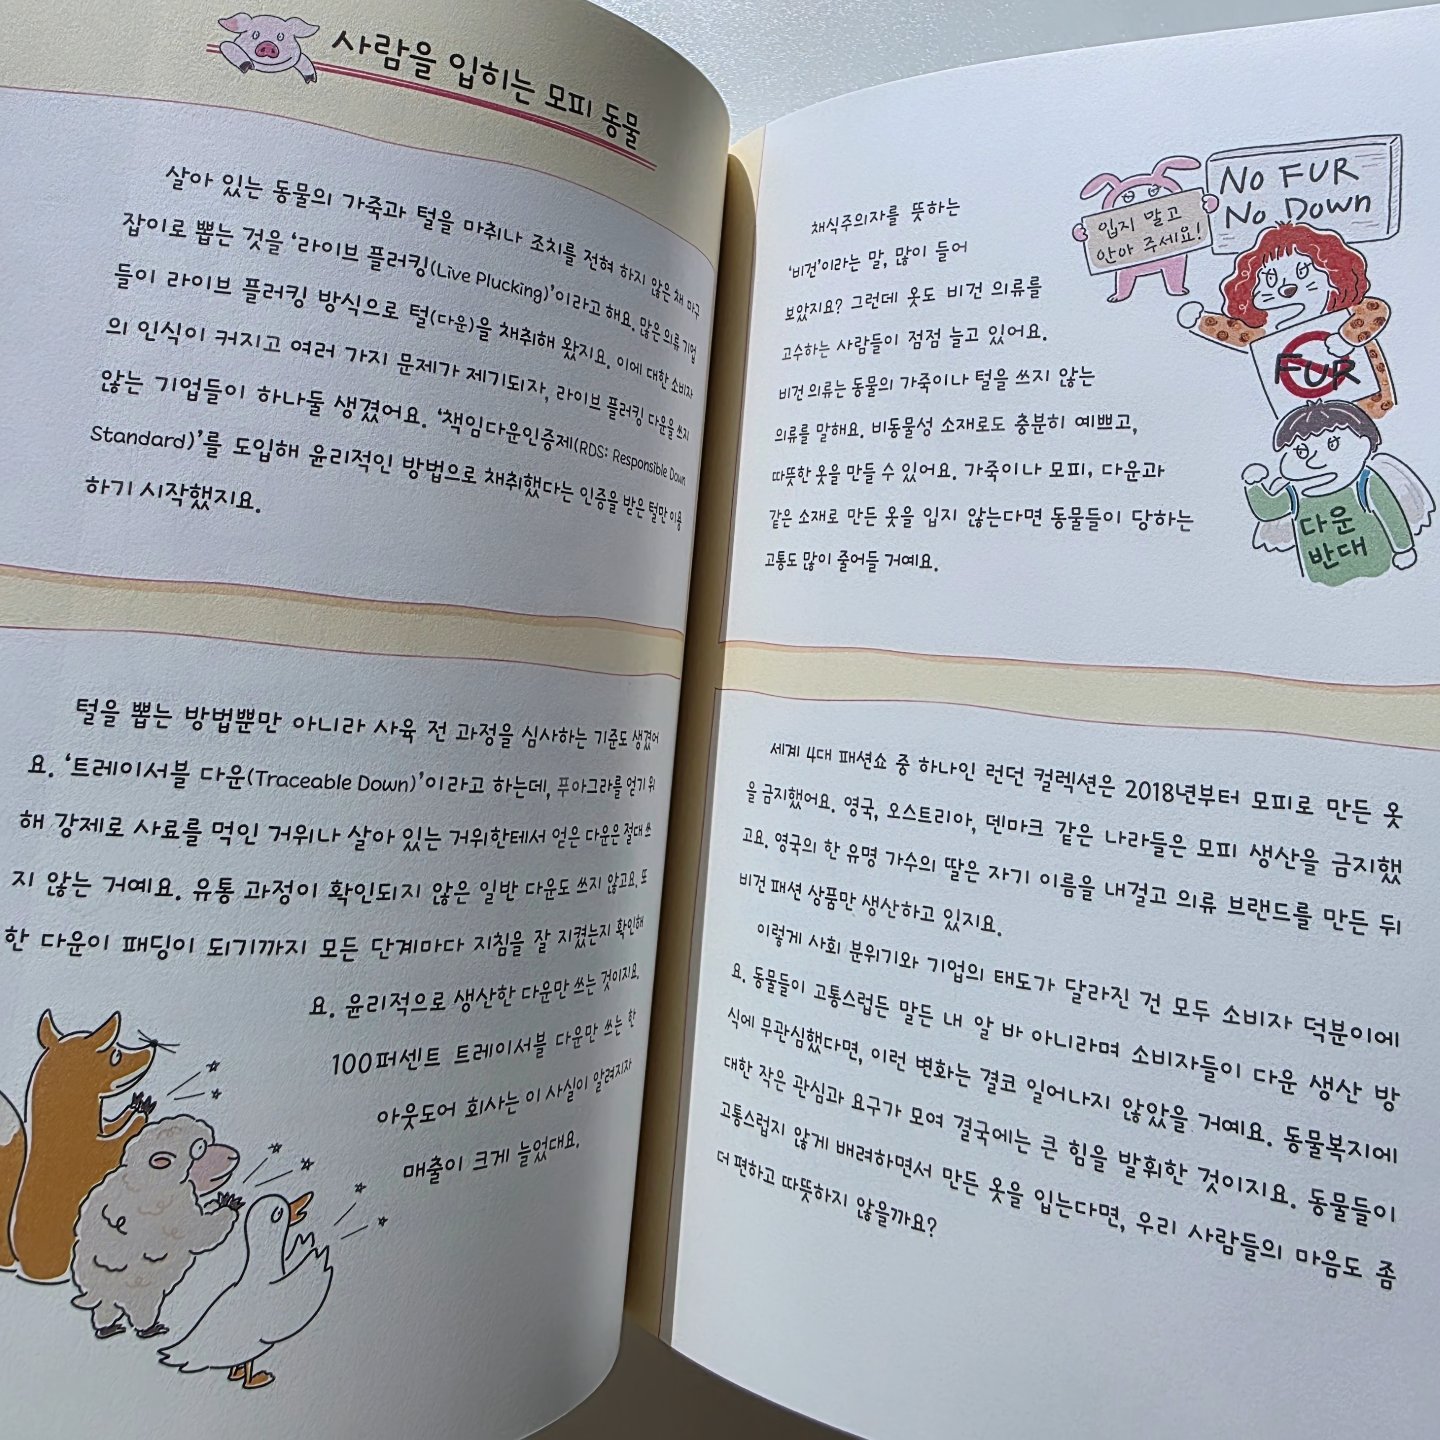 사람을 입히는 모피 동물
살아 있는 동물의 가죽과 털을 마취나 조치를 전혀 하지 않은 채 마구
잡이로 뽑는 것을 ‘라이브 플러킹(Live Plucking)’이라고 해요. 많은 의류 기업
들이 라이브 플러킹 방식으로 털(다운)을 채취해 왔지요. 이에 대한 소비자
의 인식이 커지고 여러 가지 문제가 제기되자, 라이브 플러킹 다운을 쓰지
않는 기업들이 하나둘 생겼어요. ‘책임다운인증제(RDS: Responsible Down
Standard)’를 도입해 윤리적인 방법으로 채취했다는 인증을 받은 털만 이용
하기 시작했지요.
털을 뽑는 방법뿐만 아니라 사육 전 과정을 심사하는 기준도 생겼어
요. ‘트레이서블 다운(Traceable Down)’이라고 하는데, 푸아그라를 얻기 위
해 강제로 사료를 먹인 거위나 살아 있는 거위한테서 얻은 다운은 절대 쓰
지 않는 거예요. 유통 과정이 확인되지 않은 일반 다운도 쓰지 않고요. 또
한 다운이 패딩이 되기까지 모든 단계마다 지침을 잘 지켰는지 확인해
요. 윤리적으로 생산한 다운만 쓰는 것이지요.
100퍼센트 트레이서블 다운만 쓰는 한
아웃도어 회사는 이 사실이 알려지자
매출이 크게 늘었대요.
NO FUR
No Down
입지 말고
안아 주세요!
FUR
다운
반대
채식주의자를 뜻하는
‘비건’이라는 말, 많이 들어
보았지요? 그런데 옷도 비건 의류를
고수하는 사람들이 점점 늘고 있어요.
비건 의류는 동물의 가죽이나 털을 쓰지 않는
의류를 말해요. 비동물성 소재로도 충분히 예쁘고,
따뜻한 옷을 만들 수 있어요. 가죽이나 모피, 다운과
같은 소재로 만든 옷을 입지 않는다면 동물들이 당하는
고통도 많이 줄어들 거예요.
세계 4대 패션쇼 중 하나인 런던 컬렉션은 2018년부터 모피로 만든 옷
을 금지했어요. 영국, 오스트리아, 덴마크 같은 나라들은 모피 생산을 금지했
고요. 영국의 한 유명 가수의 딸은 자기 이름을 내걸고 의류 브랜드를 만든 뒤
비건 패션 상품만 생산하고 있지요.
이렇게 사회 분위기와 기업의 태도가 달라진 건 모두 소비자 덕분이에
요. 동물들이 고통스럽든 말든 내 알 바 아니라며 소비자들이 다운 생산 방
식에 무관심했다면, 이런 변화는 결코 일어나지 않았을 거예요. 동물복지에
대한 작은 관심과 요구가 모여 결국에는 큰 힘을 발휘한 것이지요. 동물들이
고통스럽지 않게 배려하면서 만든 옷을 입는다면, 우리 사람들의 마음도 좀
더 편하고 따뜻하지 않을까요?